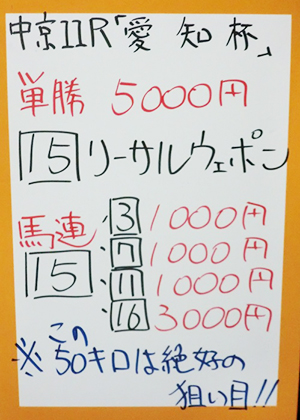 中京11R「愛知杯」
単勝 5000円
15 リーサルウェポン
馬連 15
・3 1000円
・7 1000円
・11 1000円
・16 3000円
※この50キロは絶好の
狙い目!!